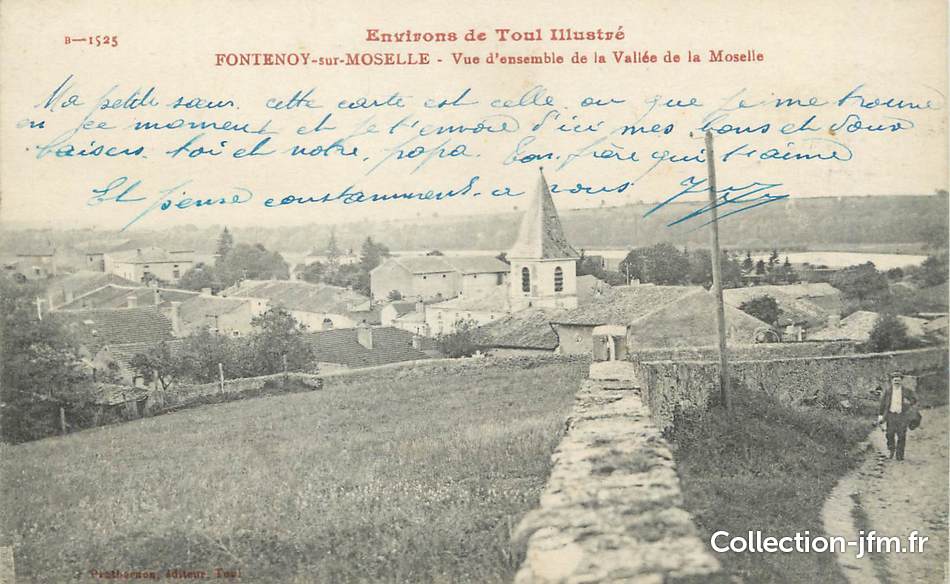 B—1525
Environs de Toul Illustré
FONTENOY-sur-MOSELLE - Vue d'ensemble de la Vallée de la Moselle
Ma petite sœur cette carte est celle ou que je me trouve
en ce moment et je t'envoie d'ici mes bons et doux
baisers toi et notre papa. Ton frère qui t'aime
Et pense constamment a vous
Prothernon, éditeur, Toul
Collection-jfm.fr